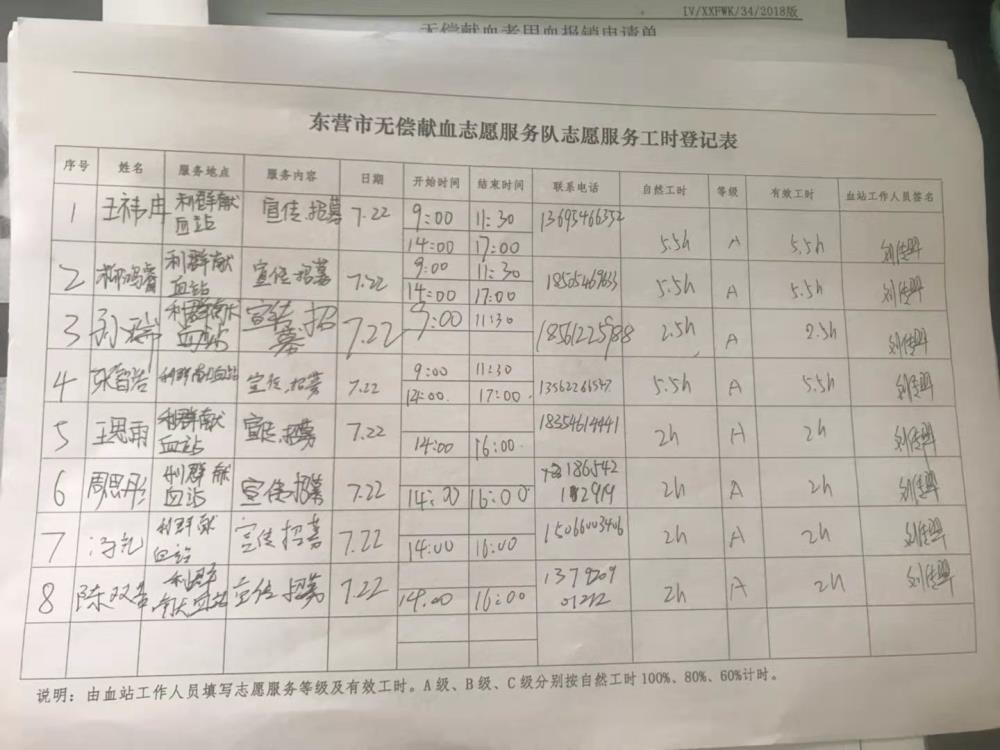 IV/XXFWK/34/2018版
无偿献血者用血报销申请单
东营市无偿献血志愿服务队志愿服务工时登记表
序号 姓名 服务地点 服务内容 日期 开始时间 结束时间 联系电话 自然工时 等级 有效工时 血站工作人员签名
1 利群献血站 宣传、招募 7.22 9:00 11:30 13695466352
14:00 17:00 5.5h A 5.5h
2 利群献血站 宣传、招募 7.22 9:00 11:30
14:00 17:00 5.5h A 5.5h
3 利群献血站 宣传、招募 7.22 9:00 11:30 2.5h A 2.5h
4 张智浩 宣传、招募 7.22 9:00 11:30 13562266547
14:00 17:00 5.5h A 5.5h
5 王思雨 利群献血站 宣传、招募 7.22 18354614441
14:00 16:00 2h A 2h
6 周思彤 利群献血站 宣传、招募 7.22 14:00 16:00 2h A 2h
7 利群献血站 宣传、招募 7.22 15066003406
14:00 16:00 2h A 2h
8 利群献血站 宣传、招募 7.22 14:00 16:00 2h A 2h
说明：由血站工作人员填写志愿服务等级及有效工时。A级、B级、C级分别按自然工时100%、80%、60%计时。